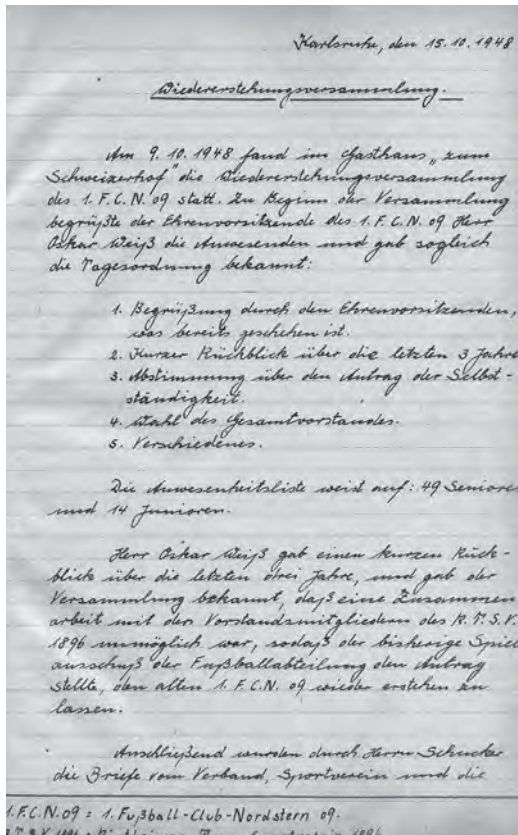 Karlsruhe, den 15.10.1948
Wiedererstehungsversammlung.
Am 9.10.1948 fand im Gasthaus „zum
Schweizerhof" die Wiedererstehungsversammlung
des 1. F.C.N. 09 statt. Zu Beginn der Versammlung
begrüßte der Ehrenvorsitzende des 1. F.C.N. 09 Herr
Oskar Weiß die Anwesenden und gab sogleich
die Tagesordnung bekannt:
1. Begrüßung durch den Ehrenvorsitzenden,
was bereits geschehen ist.
2. Kurzer Rückblick über die letzten 3 Jahre
3. Abstimmung über den Antrag der Selbst-
ständigkeit.
4. Wahl des Gesamtvorstandes.
5. Verschiedenes.
Die Anwesenheitsliste weist auf: 49 Senioren
und 14 Junioren.
Herr Oskar Weiß gab einen kurzen Rück-
blick über die letzten drei Jahre, und gab der
Versammlung bekannt, daß eine Zusammen
arbeit mit den Vorstandsmitgliedern des R.T.S.V.
1896 unmöglich war, sodaß der bisherige Spiel
ausschuß der Fußballabteilung den Antrag
stellte, den alten 1. F.C.N. 09 wieder erstehen zu
lassen.
Anschließend wurden durch Herrn Schucker
die Briefe vom Verband, Sportverein und die
1. F.C.N. 09 = 1. Fußball-Club-Nordstern 09.